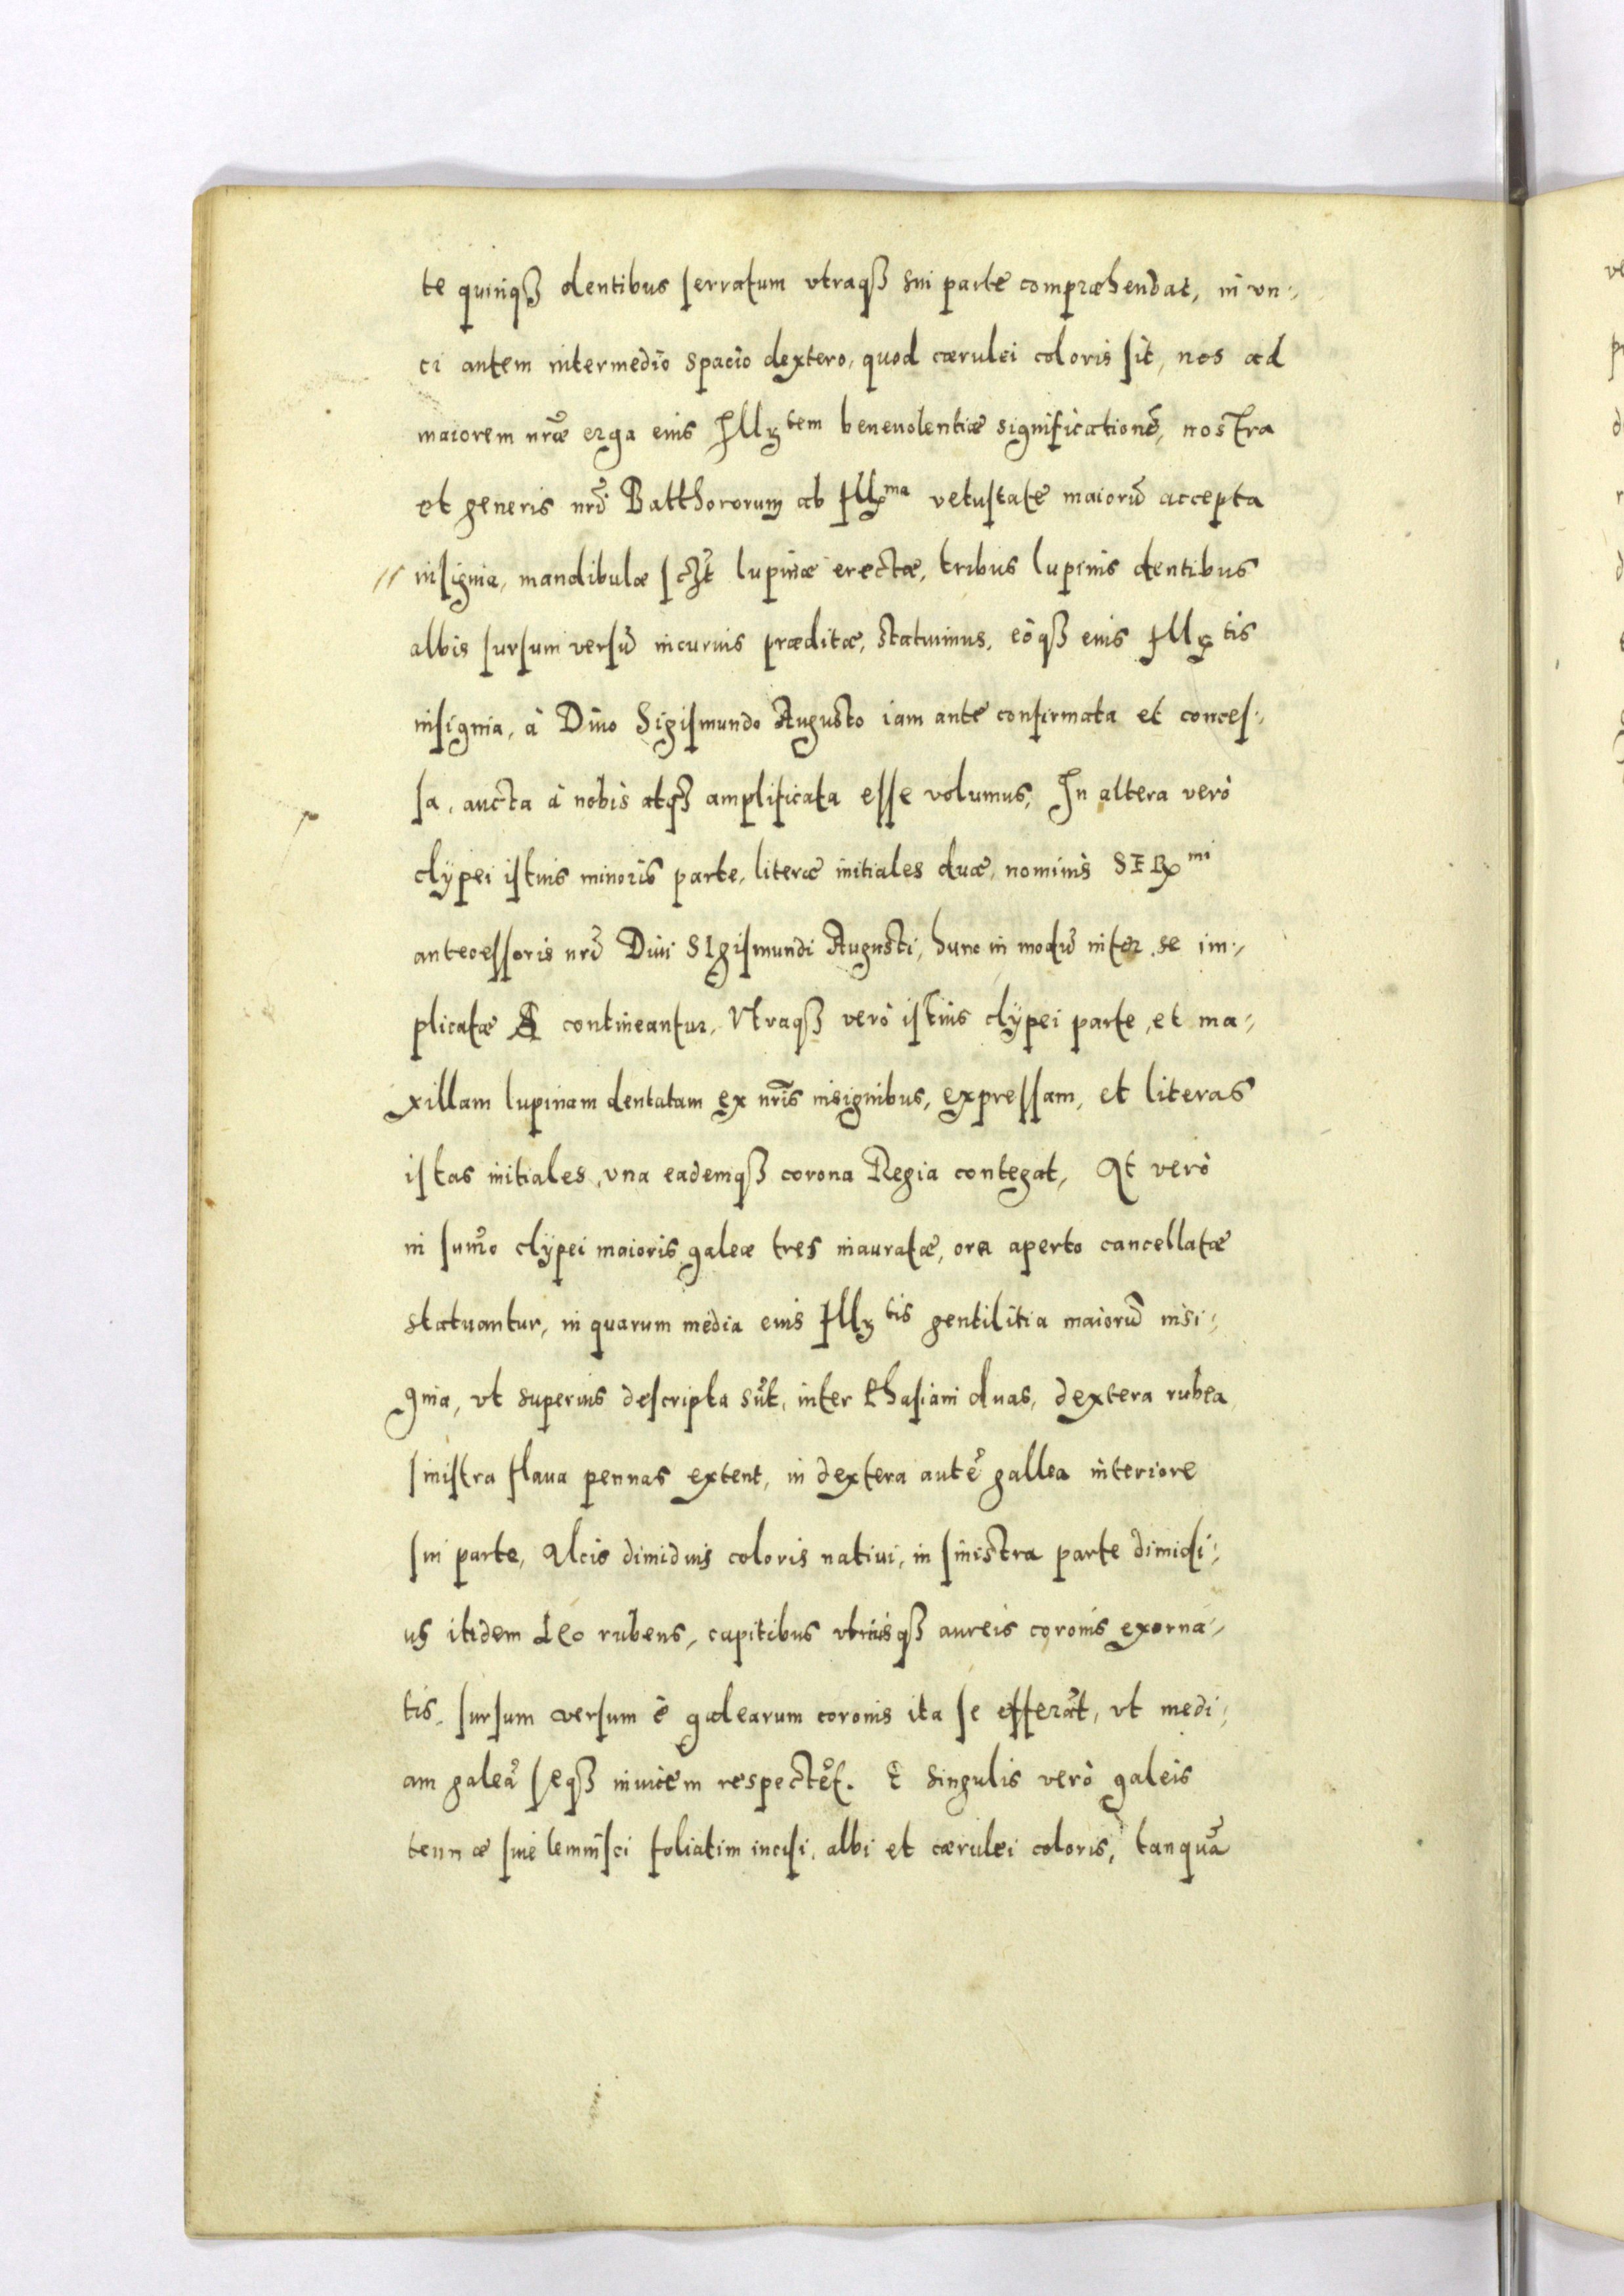 te quinqꝫ dentibus serratum vtraqꝫ sui parte compræhendat, in vn:,
ci autem intermedio spacio dextero, quod cærulei coloris sit, nos ad
maiorem nr̃æ erga eius Illꝫtem beneuolentiæ significationẽ, nostra
et generis nr̃i Batthororum ab Illma vetustate maiorũ accepta
insignia, mandibulæ sczt lupinæ erectæ, tribus lupinis dentibus
albis sursum versũ incuruis præditæ, statuimus, eòqꝫ eius Illꝫtis
insignia, à Diuo Sigismundo Augusto iam ante confirmata et conces:,
sa, aucta à nobis atqꝫ amplificata esse volumus, In altera verò
clypei istius minoris parte, literæ initiales duæ, nominis SERmi
antecessoris nr̃i Diui SIgismundi Augusti, hunc in modũ inter se im:,
plicatæ SA contineantur, Vtraqꝫ verò istius clypei parte, et ma:,
xillam lupinam dentatam ex nr̃is insignibus, expressam, et literas
istas initiales, vna eademqꝫ corona Regia contegat, At verò
in sum̃o clypei maioris galeæ tres inauratæ, ore aperto cancellatæ
statuantur, in quarum media eius Illꝫtis gentilitia maiorũ insi:,
gnia, vt superius descripta sũt, inter Phasiani duas, dextera rubea
sinistra flaua pennas extent, in dextera autẽ gallea interiore
sui parte, Alcis dimidius coloris natiui, in sinistra parte dimidi:,
us itidem Leo rubens, capitibus vtriusqꝫ aureis coronis exorna:,
tis, sursum versum è galearum coronis ita se efferãt, vt medi:,
am galeã seqꝫ inuicem respectẽt. E singulis verò galeis
tenuæ siue lemnisci foliatim incisi, albi et cærulei coloris, tanquã